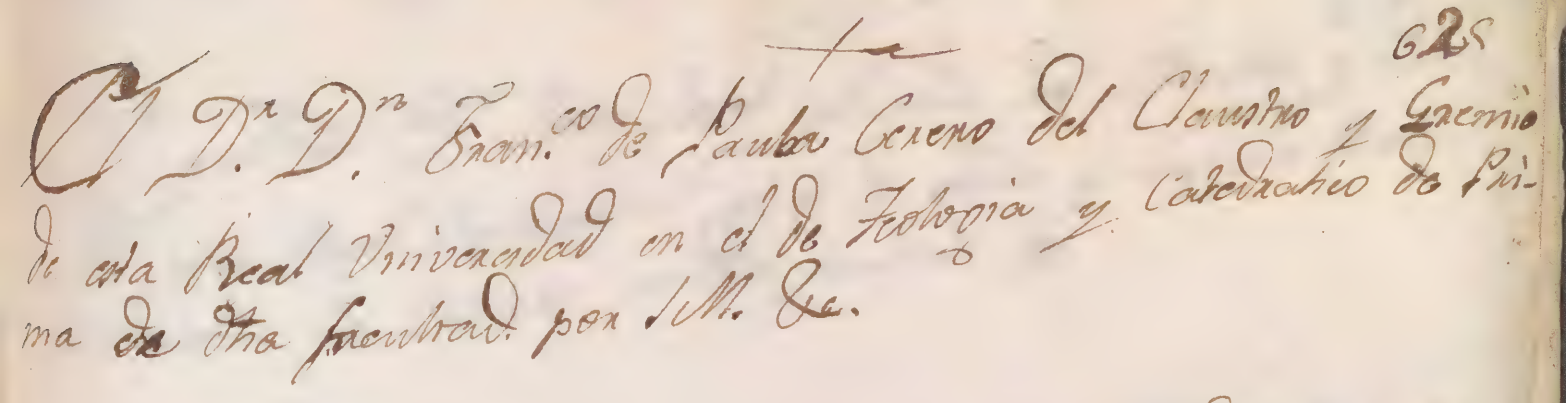 625
El D.r D.n Fran.co de Pauba Cerero del Claustro y Gremio
de esta Real Universidad en el de Teologia y Catedratico de Pri-
ma de dha facultad por SM. &c.